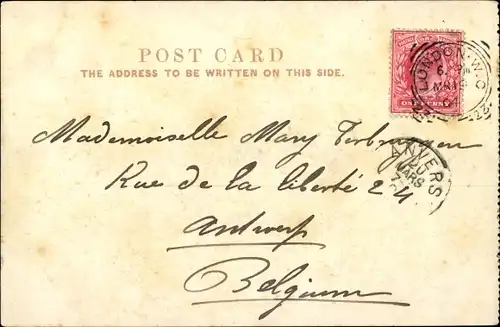 POST CARD
THE ADDRESS TO BE WRITTEN ON THIS SIDE.
ONE PENNY
LONDON.W.C
22
ANVERS
20
MARS
Mademoiselle Mary Terbruggen
Rue de la liberté 24
Antwerp
Belgium